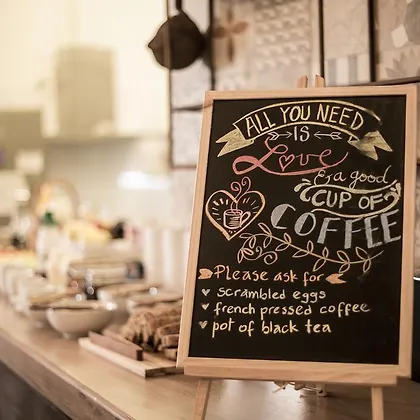 ALL YOU NEED
IS
Love
& a good
CUP OF
COFFEE
Please ask for
scrambled eggs
french pressed coffee
pot of black tea